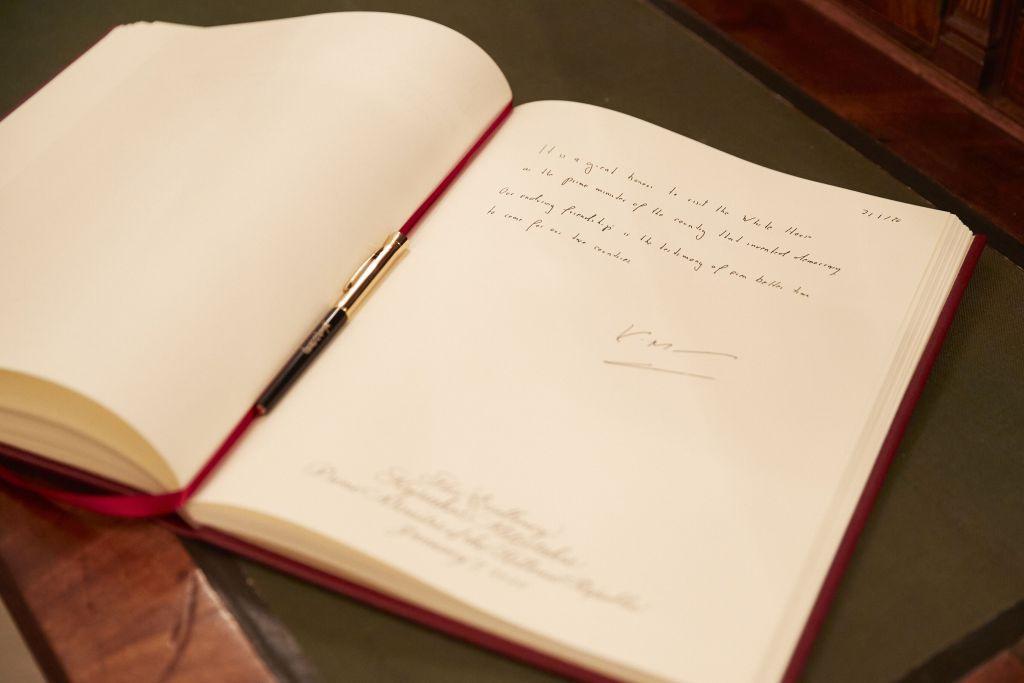 7/1/20
It is a great honor to visit the White House
as the prime minister of the country that invented democracy
Our enduring friendship is the testimony of even better time
to come for our two countries
K. M
His Excellency
Kyriakos Mitsotakis
Prime Minister of the Hellenic Republic
January 7, 2020